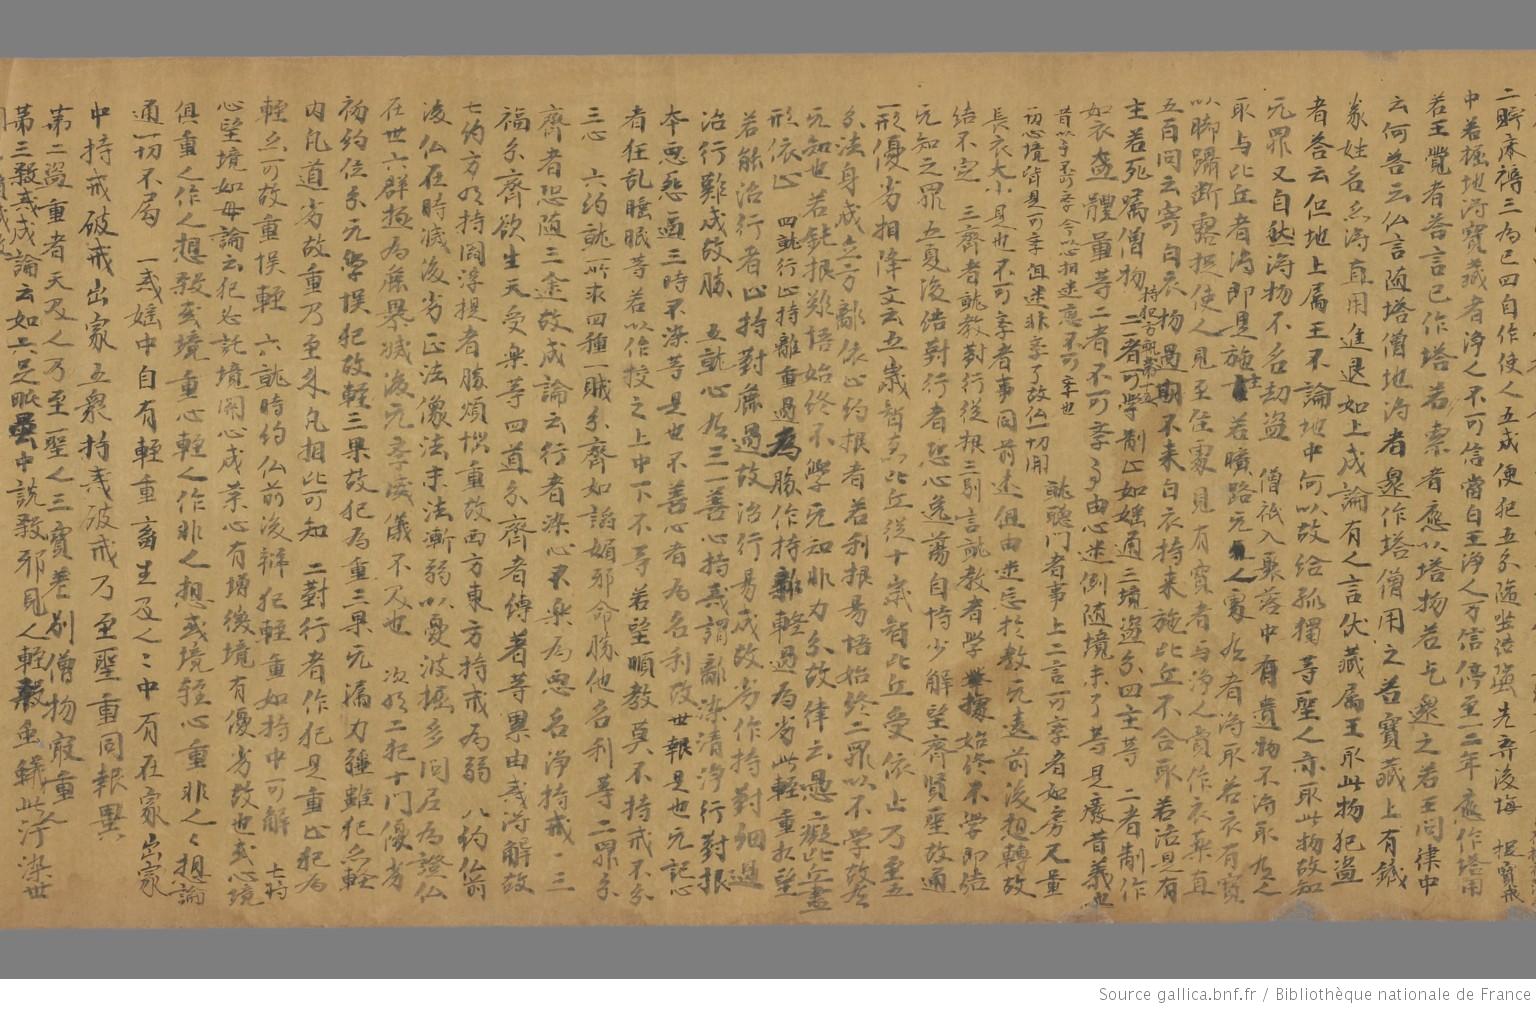 中若掘地得寶藏者淨人不可信當白王淨人可信停至二年應作塔用
若王覺者答言已作塔若索者應以塔物若乞與之若王問律中
云何答云仏言隨塔僧地得者還作塔僧用之若寶藏上有鐵
篆姓名亦得直用進退如上成論有人言伏藏屬王取此物犯盜
者答云但地上屬王不論地中何以故給孤獨等聖人亦取此物故知
无罪又自然得物不名劫盜 僧祇入聚落中有遺物不得取为人
取与比丘者得即是施主若曠路无人處为者得取若衣有寶
以脚躡断露捉使人見至住處見有寶者与淨人賣作衣藥直
五百問云寄白衣物過期不来白衣持来施比丘不合取若活見有
主若死屬僧物 二者可學制止如婬通三境盜分四主等 二者制作
如衣盔體量等二者不可學事由心迷倒隨境未了等見癡昔義也
昔以学不可学今以心相迷意不可学也
切心境皆是可学但迷非学了故仏一切用
就聽門者事上二言可学者如房尺量
長衣大小是也不可学者事同前述但由迷忘於教无遠前後想轉故
結不定 三齊者就教對行從根三別言就教者學據始終不學即結
无知之罪五夏後結對行者恐心逸蕩自恃少解望齊賢聖故通
一形優劣相降文云五歲智恵比丘從十歲智比丘受依止乃至五
分法身成立方離依止約根者若利根易悟始終二罪以不学故在
无知也若鈍根難悟始終不學无知非力分故律云愚癡比丘盡
形依止 四就行止持離重過為勝作持離輕過為劣此輕重相望
若能治行者止持對麁過故治行易成故劣作持對細過
治行難成故勝 五就心为三一善心持戒謂離染清淨行對根
本惡惡逼三時不染等是也不善心者为名利故世報是也无記心
者狂乱睡眠等若以作授之上中下不等若望順教莫不持戒不分
三心 六約就所求四種一賊分齊如諂媚邪命勝他名利等二罪分
齊者恐隨三途故成論云行者染心不樂为惡名淨持戒 三
福分齊欲生天受樂等四道分齊者縛著等累由戒得解故
七約方为持閻浮提者勝煩惱重故西方東方持戒为弱 八約俞
後仏在時滅後劣正法像法末法漸弱以憂波掘多問尼为證仏
在世六群極为麁暴滅後无学威儀不及也 次为二犯十門優劣
初約位分无學悞犯故輕三果故犯为重三果无漏力強雖犯亦輕
内凡道劣故重乃至外凡相比可知 二對行者作犯是重止犯为
輕亦可故重悞輕 六就時約仏前後辯犯輕重如持中可解 七将
心望境如母論云犯必託境開心成業心有增後境有優劣故也或心境
俱重人作人想殺或境重心輕人作非人想或境輕心重非人人想論
通一切不局 一戒婬中自有輕重畜生及人人中有在家出家
中持戒破戒出家五衆持戒破戒乃至聖重同報異
第二盜重者天及人乃至聖人三寶差別僧物寂重
第三殺戒成論云如六足毗曇中說殺邪見人輕殺虫蟻此汙染世